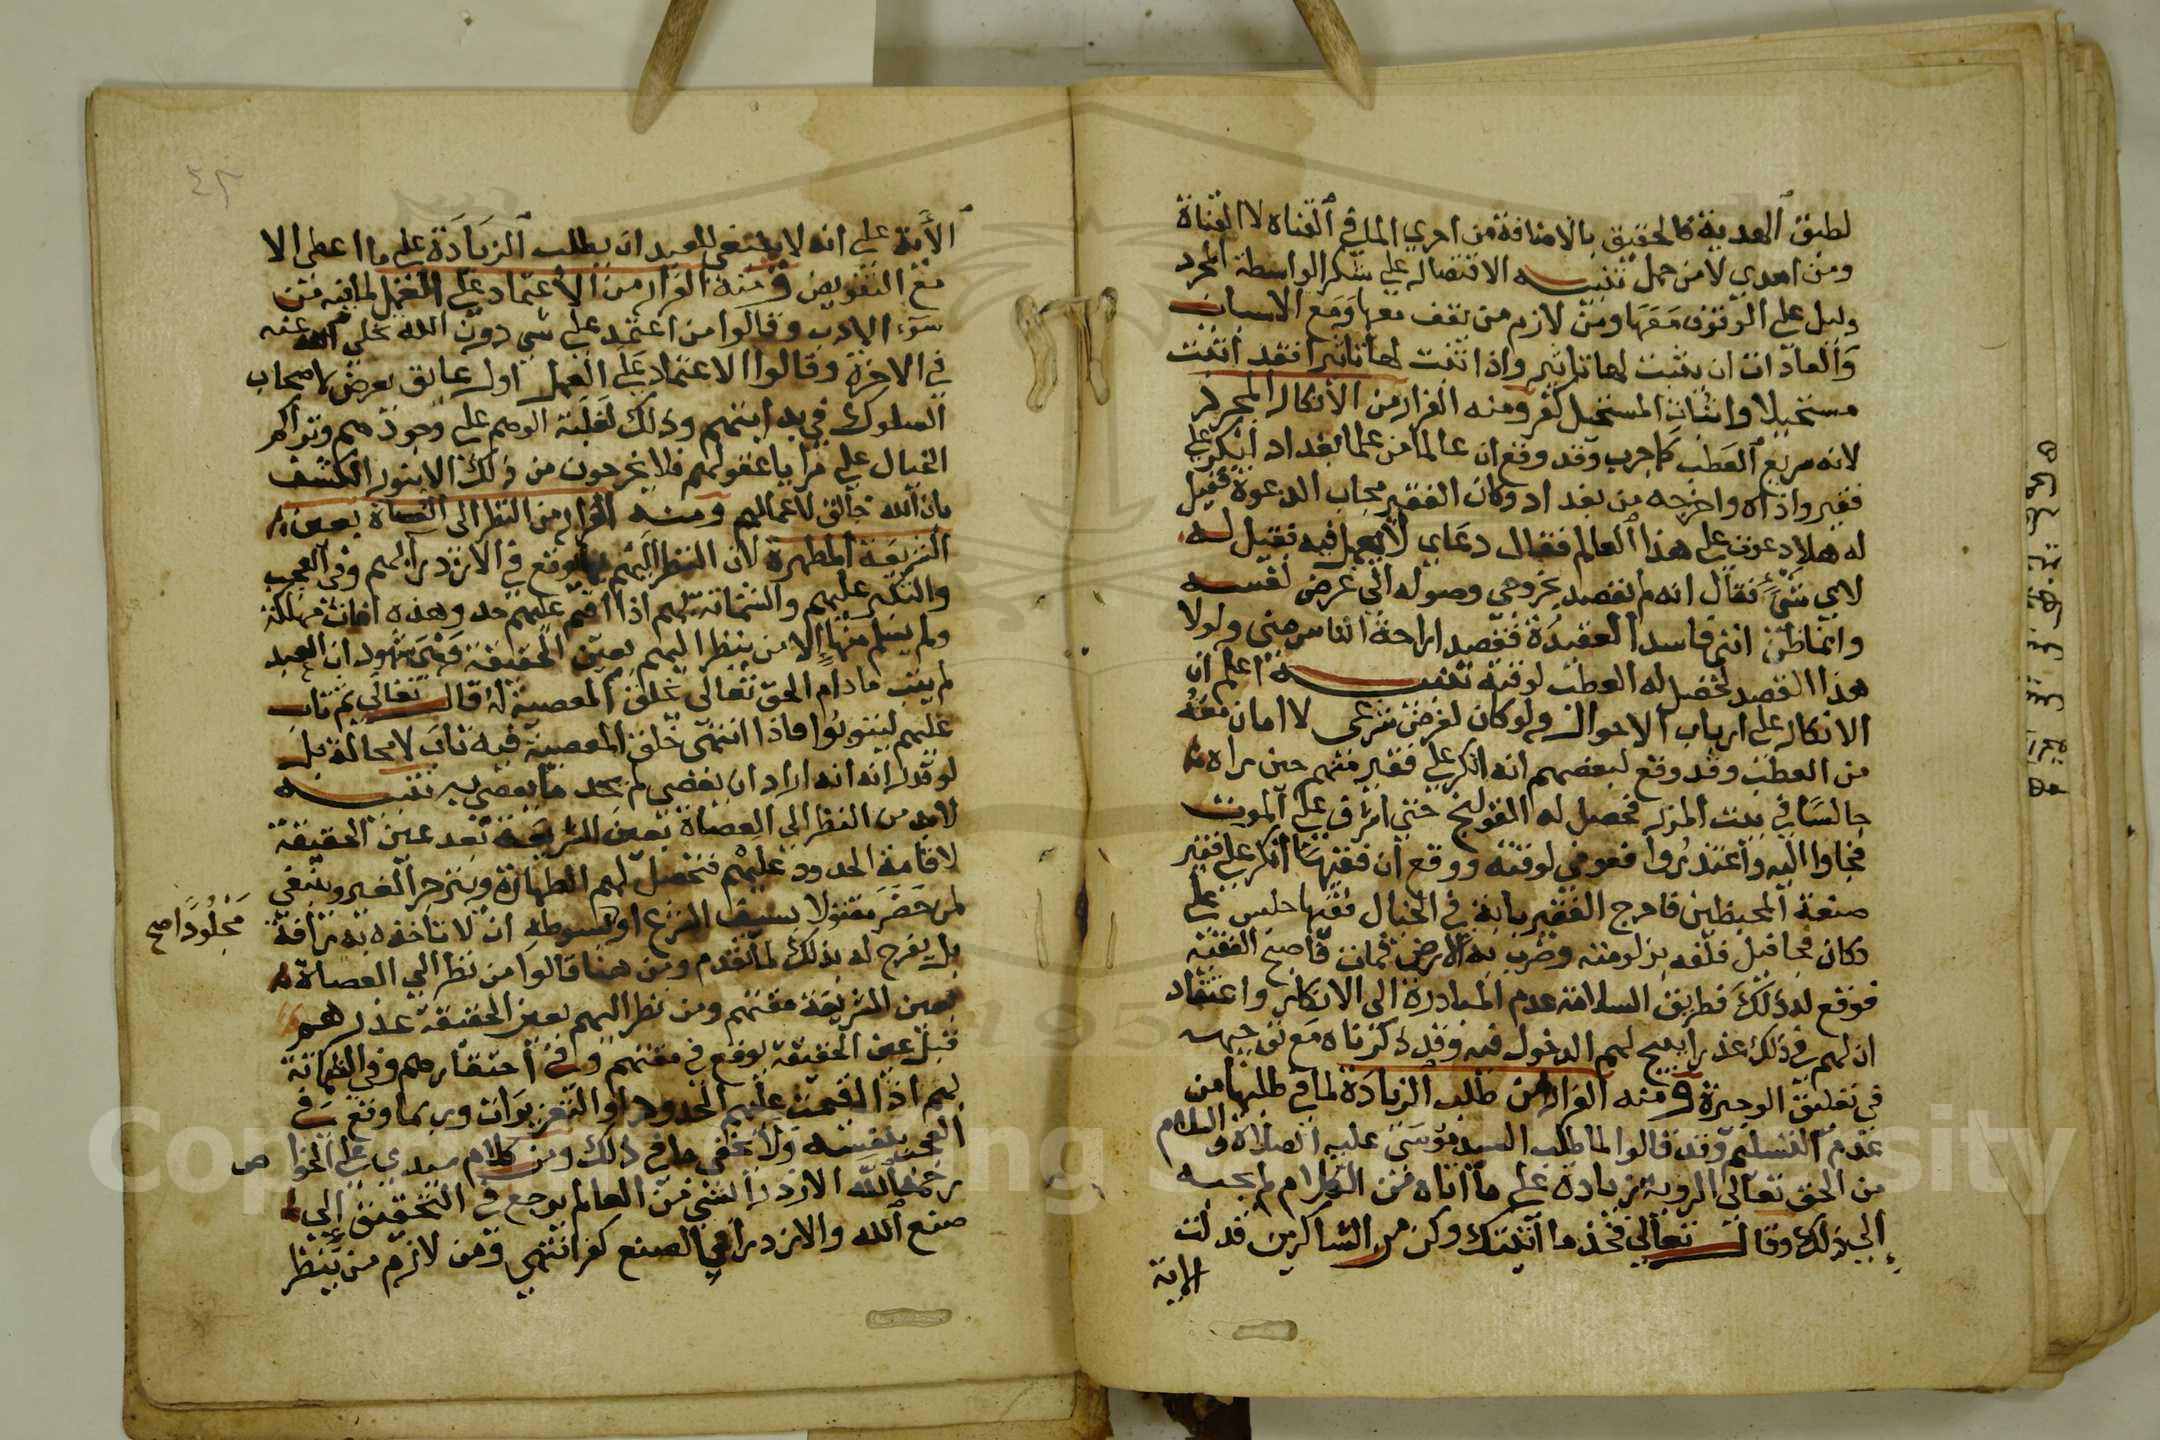 لطبق الهدية فالحقيق بالاضافة من اجري الما في القناه لا القناة
ومن اهدي لا من حمل تنبيه الاقتصار على شكر الواسطة المجرد
دليل على الوقوف معها ومن لازم من يقف معها ومع الاسباب
والعادات ان يثبت لها تاثير واذا ثبت لها تاثير فقد اثبت
مستحيلا واثبات المستحيل كفر ومنه الفرار من الانكار المجرد
لانه سريع العطب كما جرب وقد وقع ان عالما من علما بغداد انكر على
فقير واذاه واخرجه من بغداد وكان الفقير مجاب الدعوة فقيل
له هلا دعوت على هذا العالم فقال دعاي لا يعمل فيه فقيل له
لاي شيء فقال انه لم يقصد بخروجي وصوله الى غرض نفسه
وانما ظن اني فاسد العقيدة فقصد اراحة الناس مني ولولا
هذا القصد لحصل له العطب لوقته تنبيه اعلم ان
الانكار على ارباب الاحوال ولو كان لغرض شرعي لا امان معه
من العطب وقد وقع لبعضهم انه انكر على فقير منهم حين راه
جالسا في بيت المزر فحصل له القولنج حتى اشرف على الموت
فجاوا اليه واعتذروا فعوفي لوقته ووقع ان فقيها انكر على فقير
صنعة المحبظين فاخرج الفقير بابة في الخيال فقيها جلس على
دكان فجا فيل فلفه بزلومته وضرب به الارض فمات فاصبح الفقيه
فوقع له ذلك فطريق السلامة عدم المبادرة الى الانكار واعتقاد
ان لهم في ذلك عذرا يبيح لهم الدخول فيه وقد ذكرناه مع توجيهه
في تعليق الوجيزة ومنه الفرار من طلب الزيادة لما في طلبها من
عدم التسليم وقد قالوا لما طلب السيد موسى عليه الصلاة والسلام
من الحق تعالى الروية زيادة على ما اتاه من الكلام لم يجبه
الي ذلك وقال تعالى فخذ ما آتيتك وكن من الشاكرين فدلت
الاية
٤٢
الآية على انه لا ينبغي للعبد ان يطلب الزيادة على ما اعطى الا
مع التفويض ومنه الفرار من الاعتماد على العمل لما فيه من
سوء الادب وقالوا من اعتمد على شي دون الله تخلى الله عنه
في الاخرة وقالوا الاعتماد على العمل اول عايق يعرض لاصحاب
السلوك في بدايتهم وذلك لغلبة الوهم على وجودهم وتراكم
الخيال على مرايا عقولهم فلا يخرجون من ذلك الا بنور الكشف
بان الله خالق لاعمالهم ومنه الفرار من النظر الى العصاة بعين
الشريعة المطهرة لان النظر اليهم بها يوقع في الازدرا بهم وفي العجب
والتكبر عليهم والشماتة بهم اذا اقيم عليهم حد وهذه افات مهلكة
ولم يسلم منها الا من ينظر اليهم بعين الحقيقة وهي شهود ان العبد
لم يتب ما دام الحق تعالى يخلق المعصية له قال تعالى ثم تاب
عليهم ليتوبوا فاذا انتهى خلق المعصية فيه تاب لا محالة بل
لو قدر انه انه اراد ان يعصي لم يجد ما يعصي به تنبيه
لابد من النظر الى العصاة بعين الشريعة بعد عين الحقيقة
لاقامة الحدود عليهم فتحصل لهم الطهارة وينزجر الغير وينبغي
لمن حضر مقتولا بسيف الشرع او بسوطه ان لا تاخذه به رافة
مجلودا صح
بل يفرح له بذلك لما تقدم ومن هنا قالوا من نظر الى العصاة
بعين الشريعة مقتهم ومن نظر اليهم بعين الحقيقة عذرهم
قبل عين الحقيقة يوقع في مقتهم وفي احتقارهم وفي الشماتة
بهم اذا اقيمت عليهم الحدود او التعزيرات وربما وقع في
العجب بنفسه ولا يخفى ما في ذلك ومن كلام سيدي علي الخواص
رحمه الله الازدرا لشي من العالم يرجع في التحقيق الى
صنع الله والازدرا في الصنع كفر انتهى ومن لازم من ينظر